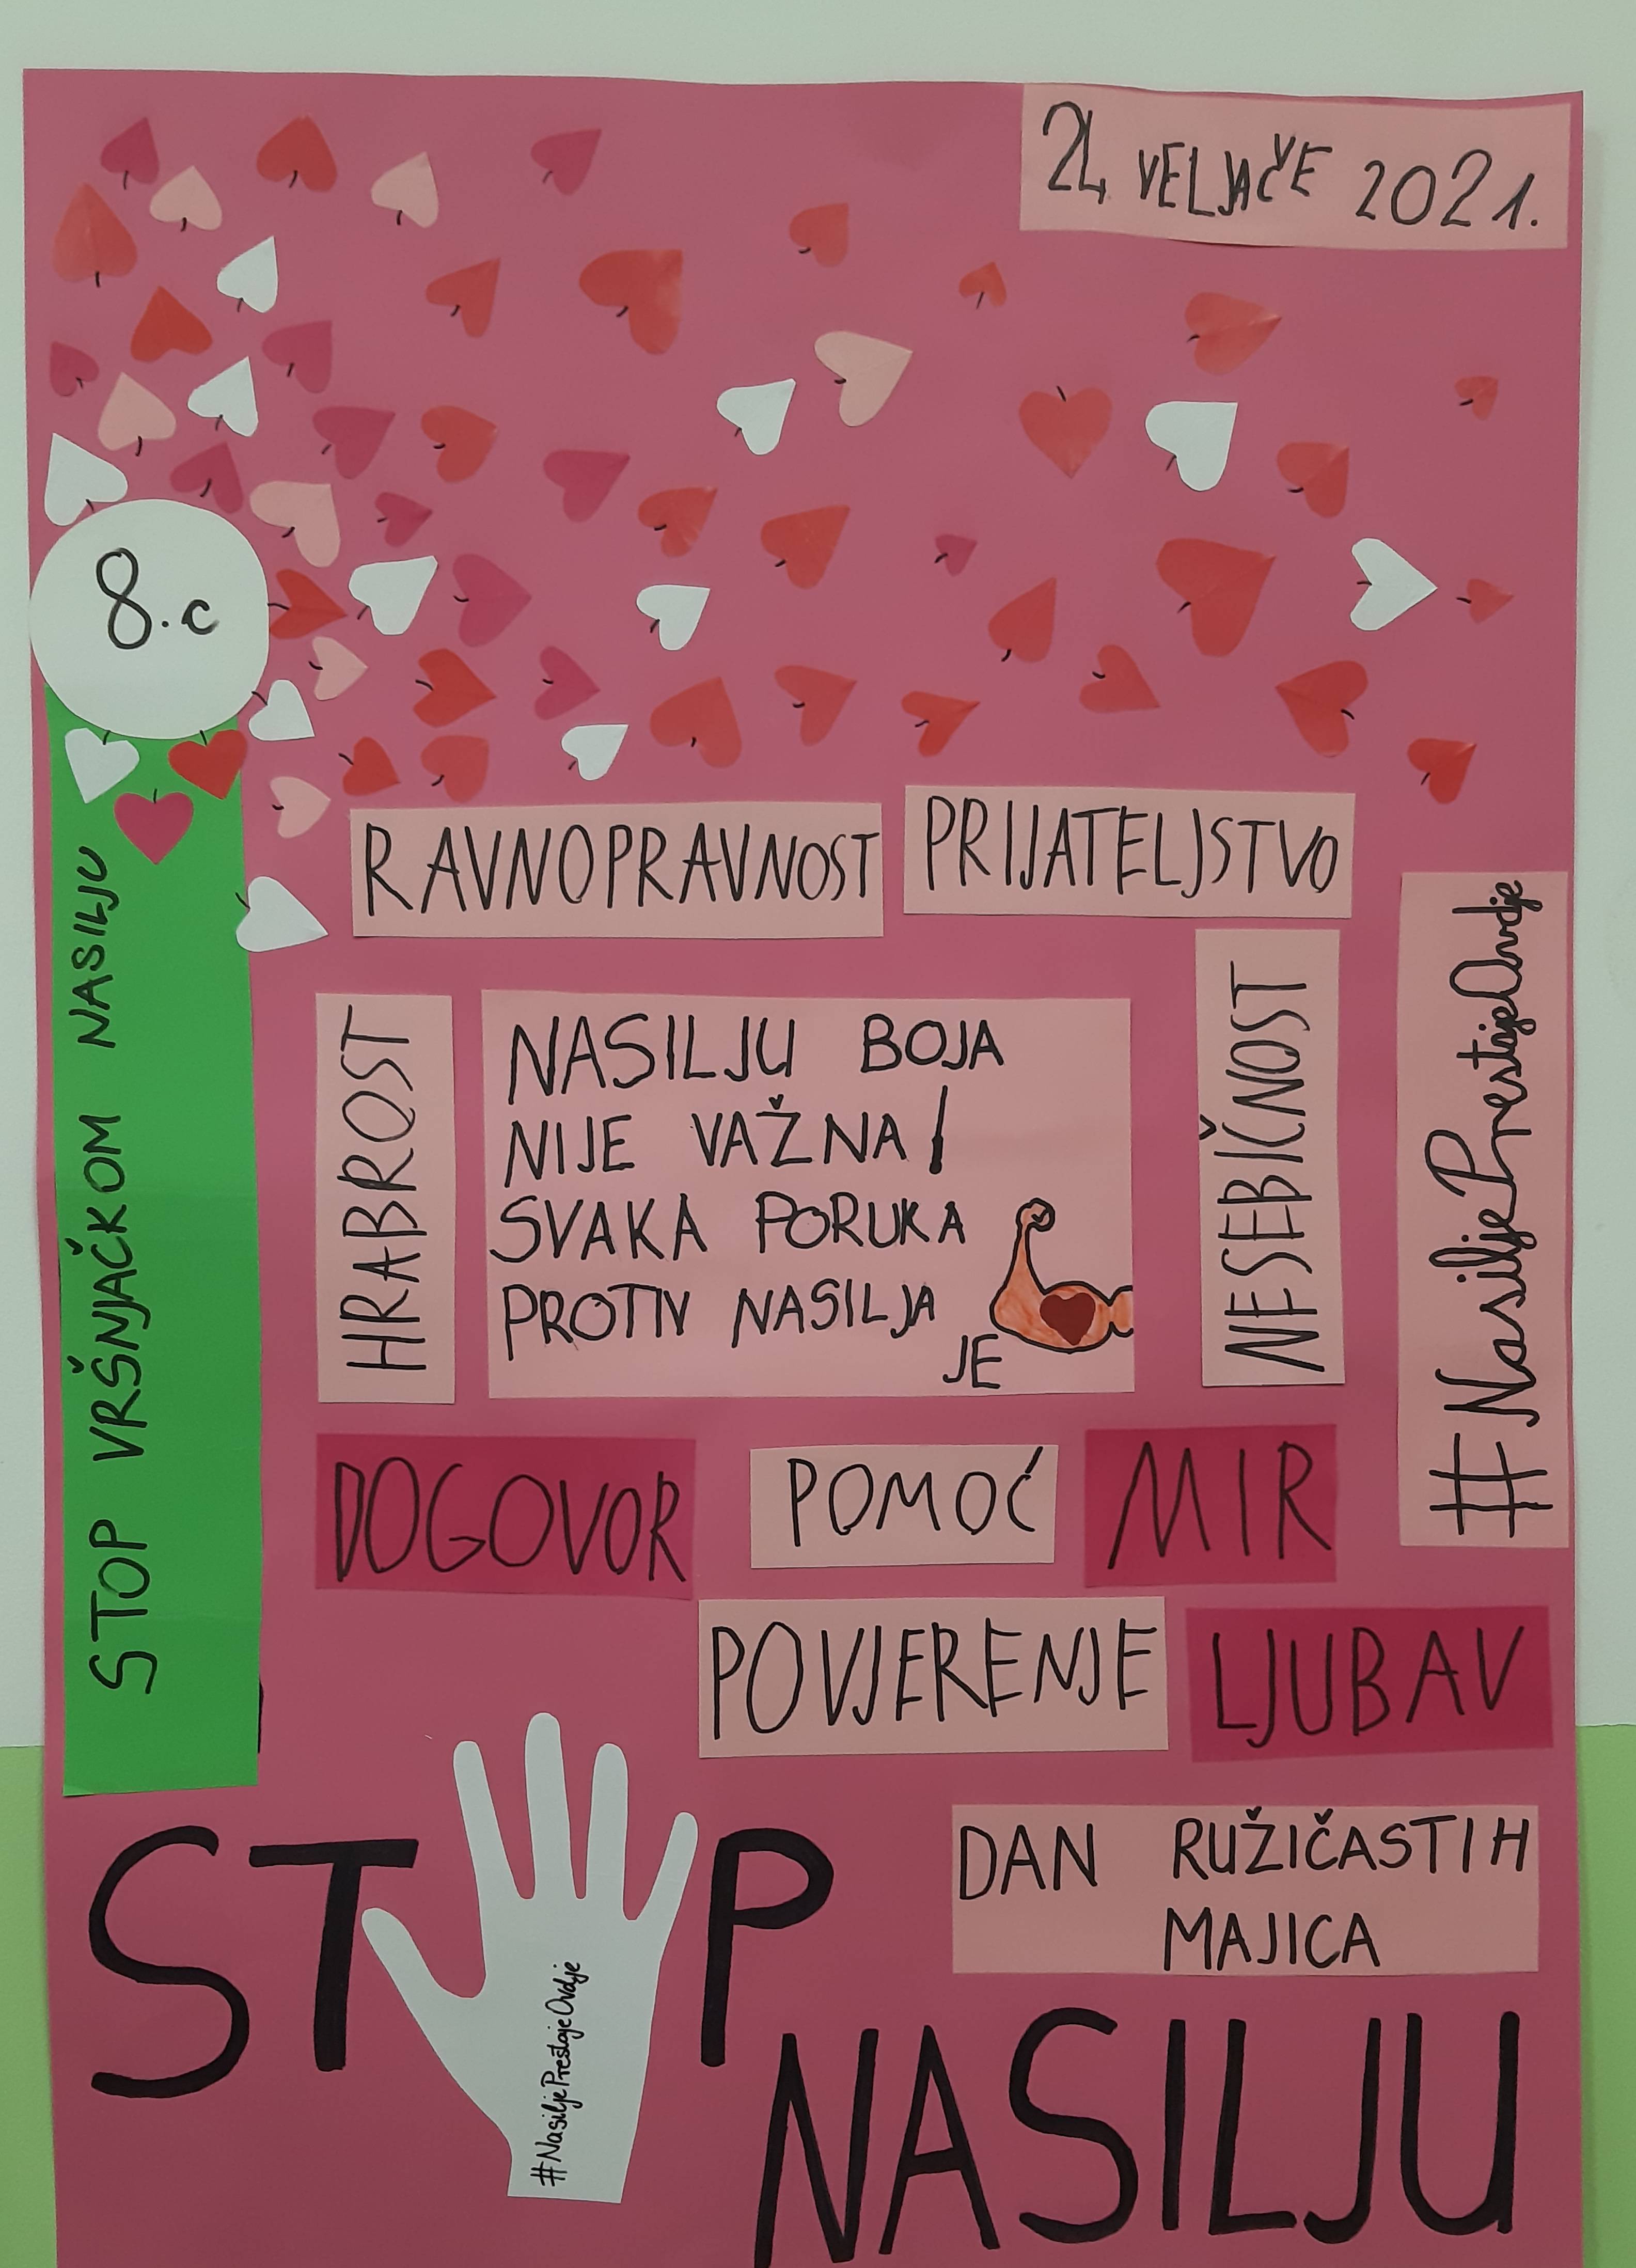 24 VELJAČE 2021.
8.c
STOP VRŠNJAČKOM NASILJU
RAVNOPRAVNOST
PRIJATELJSTVO
HRABROST
NASILJU BOJA
NIJE VAŽNA!
SVAKA PORUKA
PROTIV NASILJA
JE
NESEBIČNOST
#NasiljePrestajeOvdje
DOGOVOR
POMOĆ
MIR
POVJERENJE
LJUBAV
DAN RUŽIČASTIH
MAJICA
ST P
#NasiljePrestajeOvdje
NASILJU